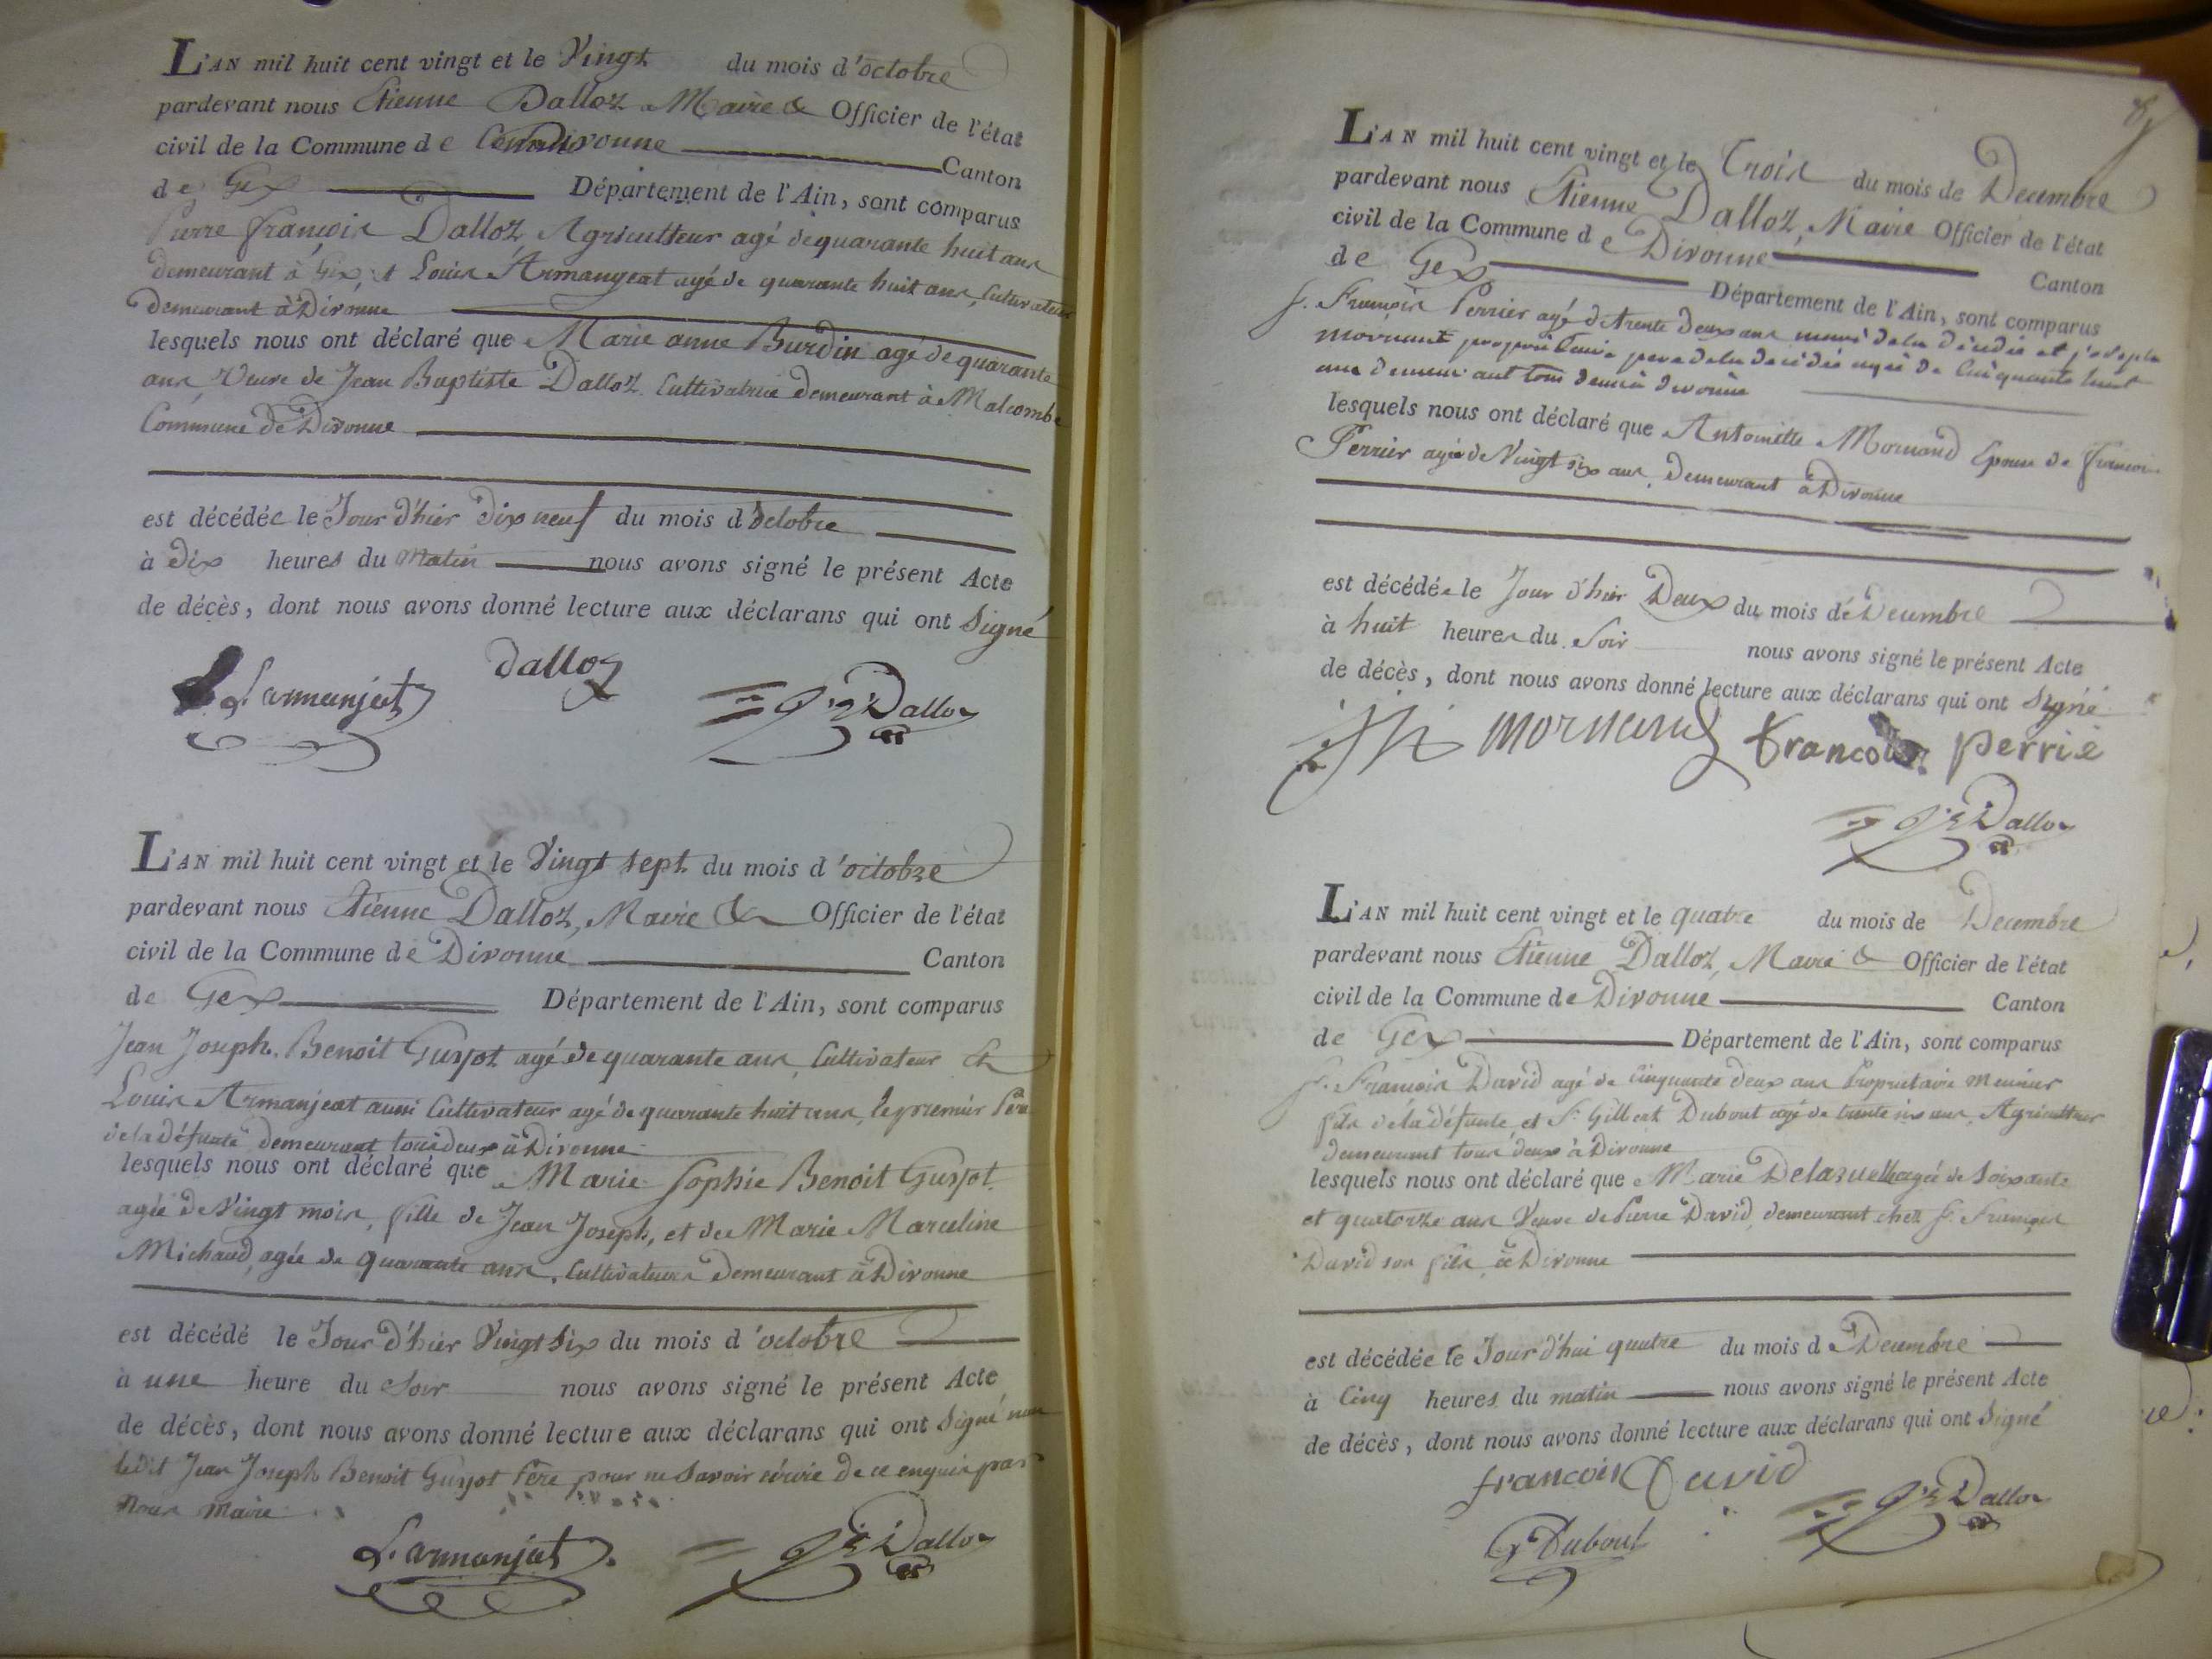 L'AN mil huit cent vingt et le Vingt du mois d'octobre
pardevant nous Etienne Dalloz Maire & Officier de l'état
civil de la Commune de Divonne Canton
de Gex Département de l'Ain, sont comparus
Pierre françois Dalloz Agriculteur agé de quarante huit ans
demeurant à Gex, et Louis Armangeat agé de quarante huit ans, Cultivateur
demeurant à Divonne
lesquels nous ont déclaré que Marie anne Burdin agé de quarante
ans Veuve de Jean Baptiste Dalloz Cultivatrice demeurant à Malcombe
Commune de Divonne
est décédée le Jour d'hier dix neuf du mois d'octobre
à dix heures du Matin nous avons signé le présent Acte
de décès, dont nous avons donné lecture aux déclarans qui ont Signé
L. armanjat Dalloz Dalloz
L'AN mil huit cent vingt et le Vingt sept du mois d'octobre
pardevant nous Etienne Dalloz, Maire & Officier de l'état
civil de la Commune de Divonne Canton
de Gex Département de l'Ain, sont comparus
Jean Joseph Benoit Guyot agé de quarante ans, Cultivateur Et
Louis Armanjeat aussi Cultivateur agé de quarante huit ans, le premier Père
de la défunte demeurant tous deux à Divonne
lesquels nous ont déclaré que Marie Sophie Benoit Guyot
agée de Vingt mois, fille de Jean Joseph, et de Marie Marceline
Michaud, agée de quarante ans, Cultivateurs Demeurant à Divonne
est décédé le Jour d'hier Vingt six du mois d'octobre
à une heure du Soir nous avons signé le présent Acte
de décès, dont nous avons donné lecture aux déclarans qui ont Signé non
ledit Jean Joseph Benoit Guyot Père pour ne savoir écrire de ce enquis par
Nous Maire
L. armanjat Dalloz
L'AN mil huit cent vingt et le Trois du mois de Decembre
pardevant nous Etienne Dalloz, Maire Officier de l'état
civil de la Commune de Divonne Canton
de Gex Département de l'Ain, sont comparus
s. François Perrier agé de trente deux ans mari de la décédée et joseph
mornand propriétaire pere de la décédée agé de Cinquante huit
ans demeurant tous deux à divonne
lesquels nous ont déclaré que Antoinette Mornand Epouse de françois
Perrier agée de Vingt six ans, Demeurant à Divonne
est décédée le Jour d'hier Deux du mois de Decembre
à huit heures du Soir nous avons signé le présent Acte
de décès, dont nous avons donné lecture aux déclarans qui ont Signé
mornand francois perrie
Dalloz
L'AN mil huit cent vingt et le quatre du mois de Decembre
pardevant nous Etienne Dalloz, Maire & Officier de l'état
civil de la Commune de Divonne Canton
de Gex Département de l'Ain, sont comparus
s. François David agé de cinquante deux ans Propriétaire Meunier
fils de la défunte et S. Gilbert Dubout agé de trente six ans, Agriculteur
demeurant tous deux à Divonne
lesquels nous ont déclaré que Marie Delaruelle agée de Soixante
et quatorze ans Veuve de Pierre David, demeurant chez s. François
David son fils à Divonne
est décédée le Jour d'hui quatre du mois de Decembre
à Cinq heures du matin nous avons signé le présent Acte
de décès, dont nous avons donné lecture aux déclarans qui ont Signé
francois David
Dubout Dalloz